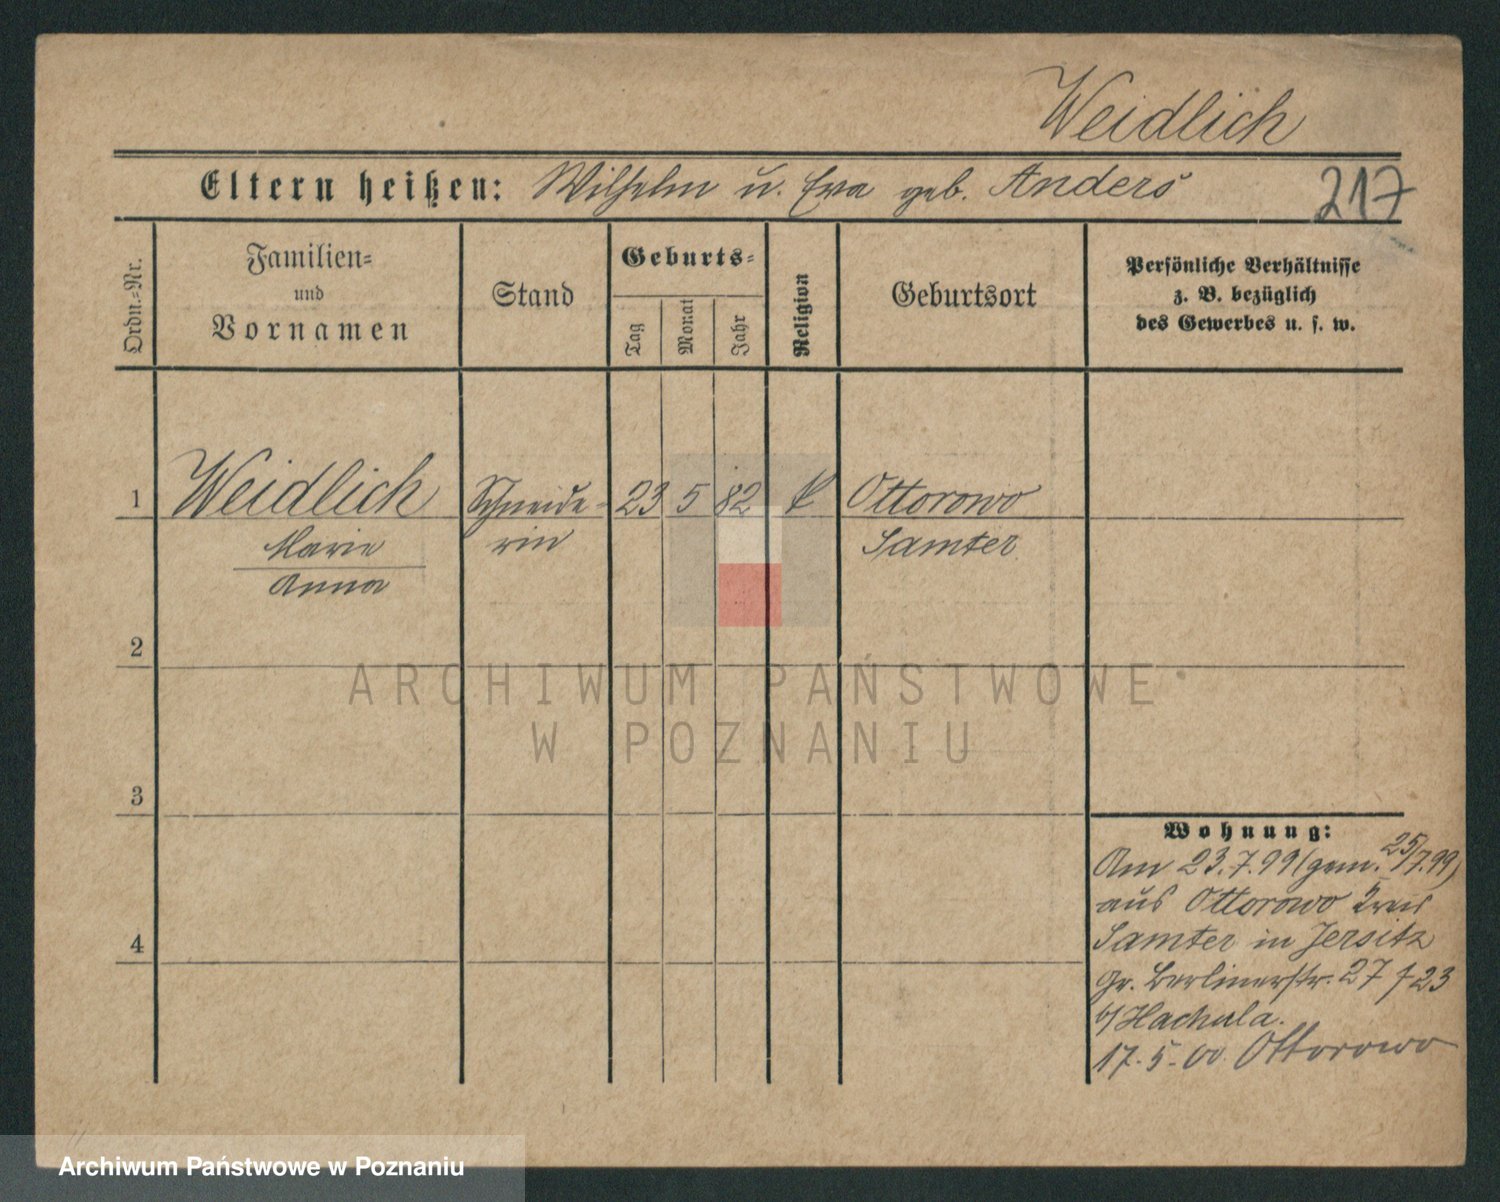 Weidlich
Eltern heißen: Wilhelm u. Eva geb. Anders
217
Ordn.=Nr.
Familien=
und
Vornamen
Stand
Geburts=
Tag
Monat
Jahr
Religion
Geburtsort
Persönliche Verhältnisse
z. B. bezüglich
des Gewerbes u. s. w.
1 Weidlich Schneide- 23 5 82 k Ottorowo
Marie rin Samter
Anna
2
ARCHIWUM PAŃSTWOWE
W POZNANIU
3
Wohnung:
Am 23.7.99 (gem. 25/7.99)
aus Ottorowo Kreis
Samter in Jersitz
Gr. Berlinerstr. 27 f 23
b/ Hachula.
17.5.00 Ottorowo
4
Archiwum Państwowe w Poznaniu